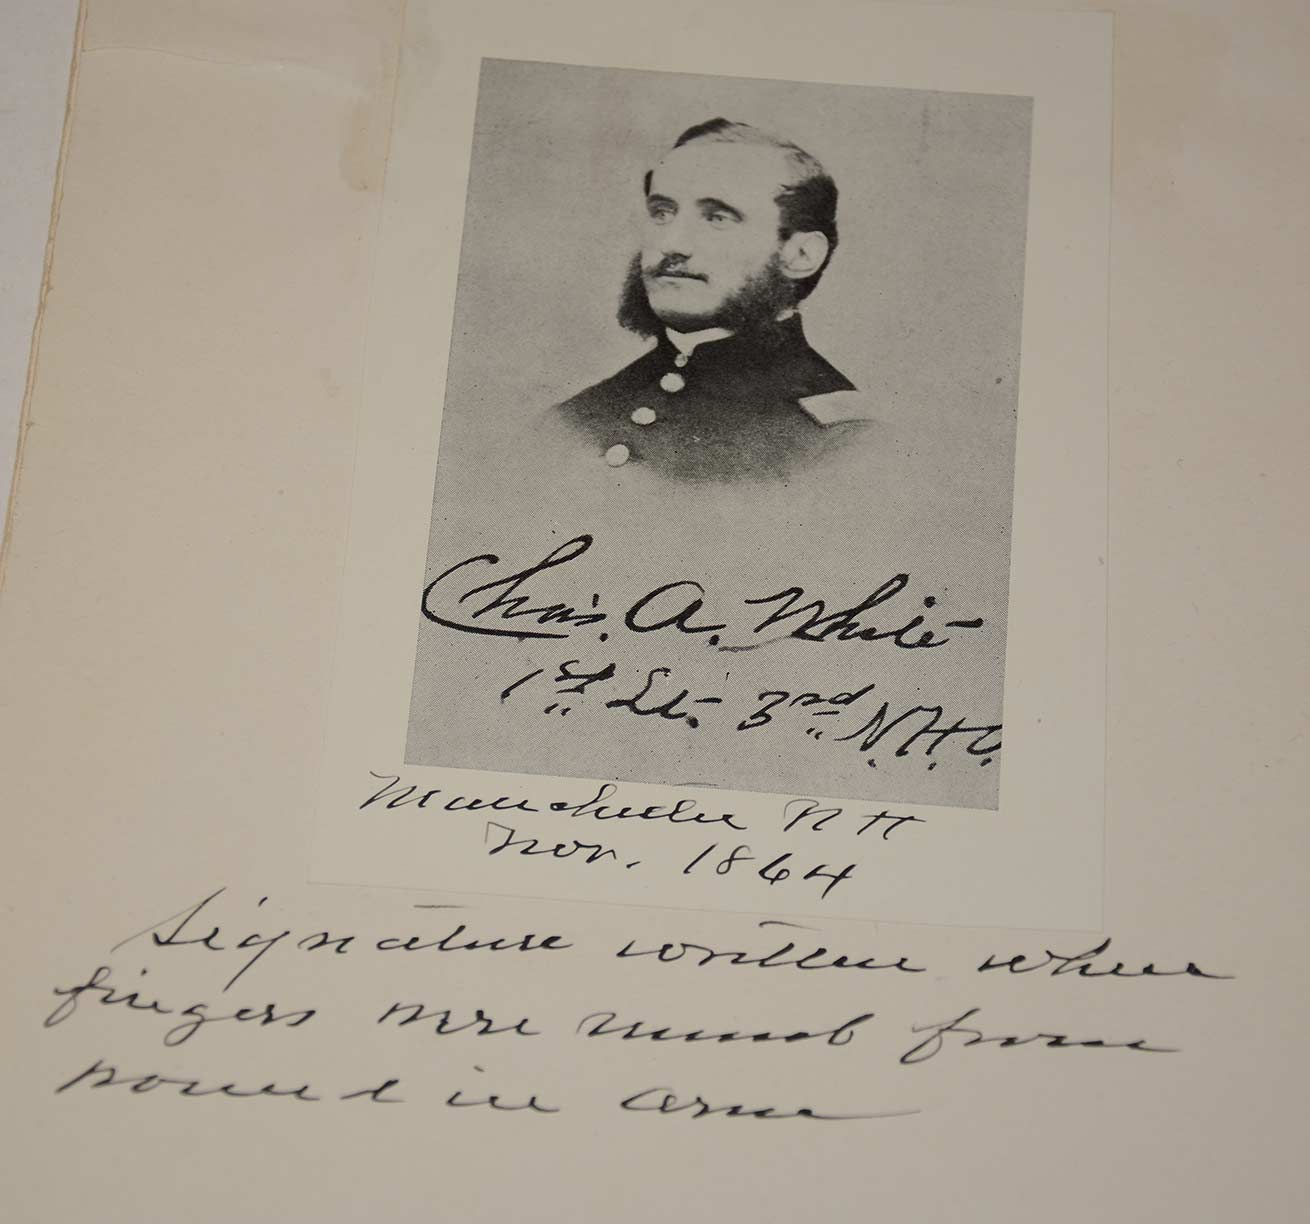 Chas. A. White
1st Lt. 3rd N.H.V.
Manchester NH
Nov. 1864
Signature written when
fingers were numb from
wound in arm